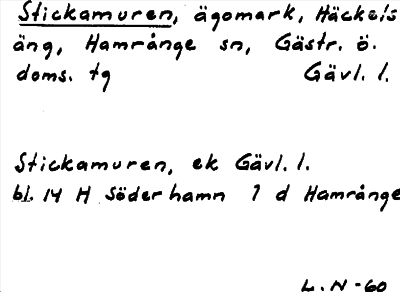 Stickamuren, ägomark, Häckels
äng, Hamrånge sn, Gästr. ö.
doms. tg Gävl. l.
Stickamuren, ek Gävl. l.
bl. 14 H Söderhamn 1 d Hamrånge
L. N -60